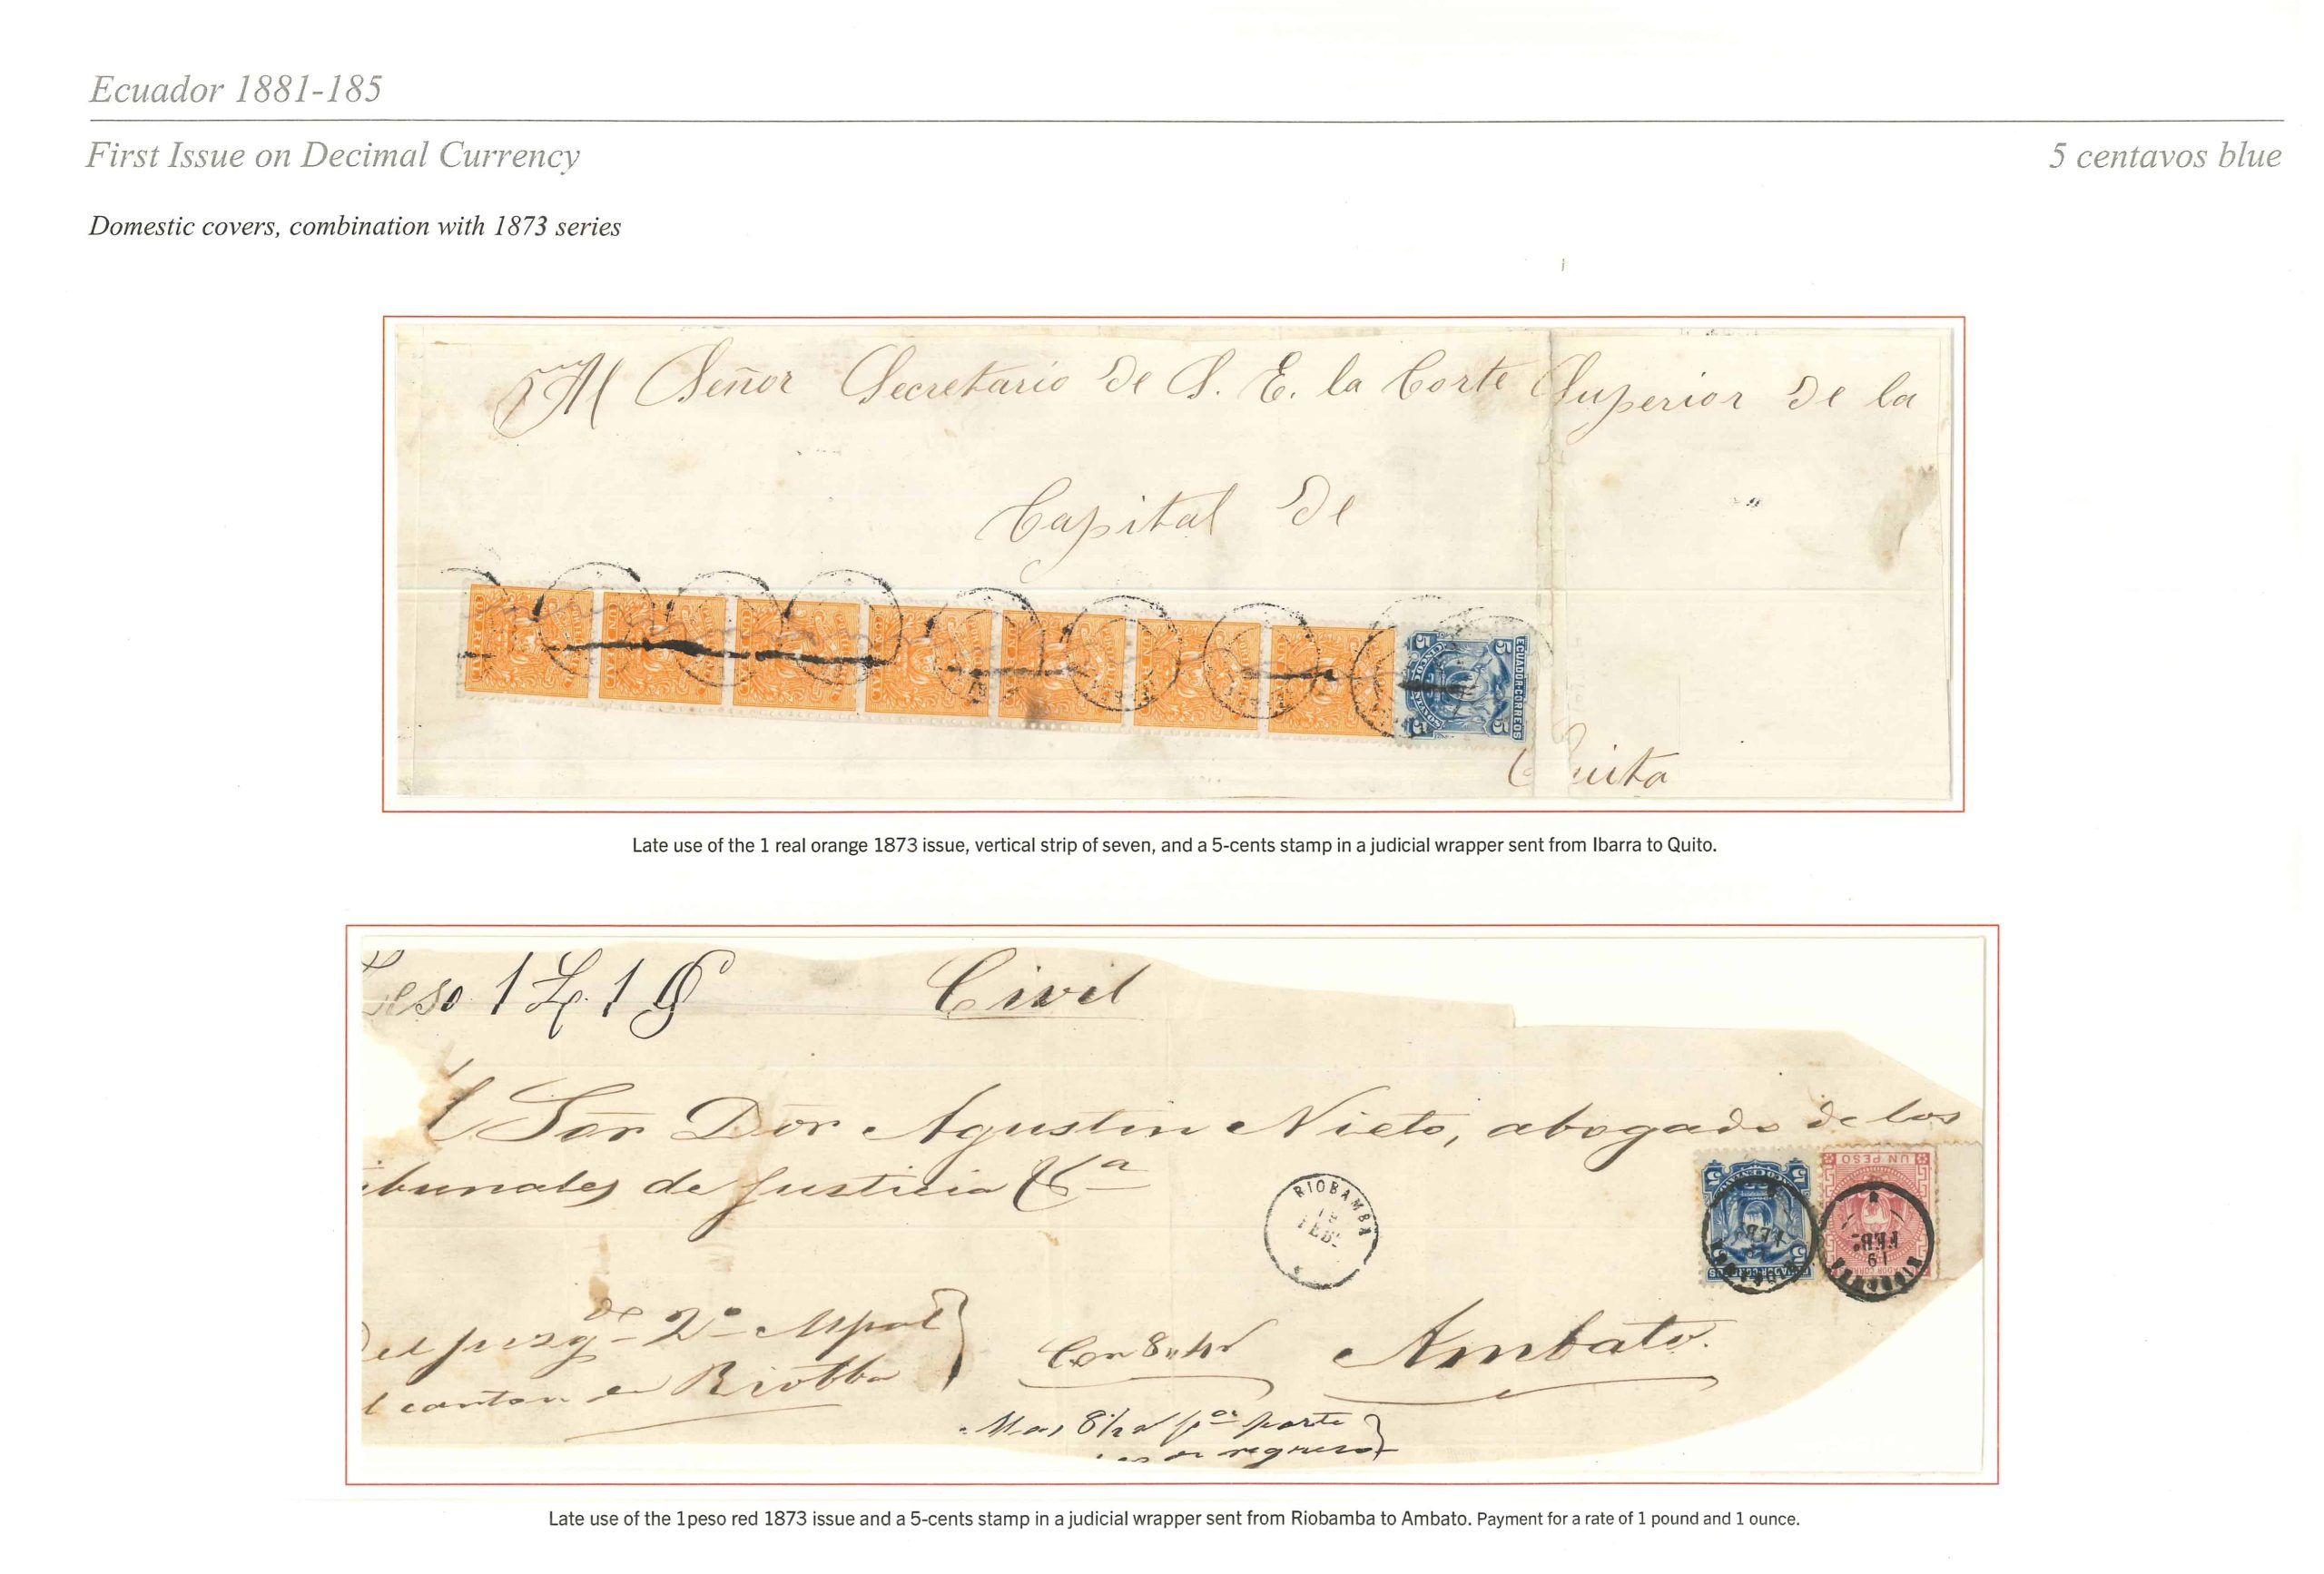 Ecuador 1881-185
First Issue on Decimal Currency
5 centavos blue
Domestic covers, combination with 1873 series
Al Señor Secretario de S. E. la Corte Superior de la
Capital de
ECUADOR CORREOS
5 5
CINCO CENTAVOS
5 5
Quito
Late use of the 1 real orange 1873 issue, vertical strip of seven, and a 5-cents stamp in a judicial wrapper sent from Ibarra to Quito.
Peso 1 L. 1
Civil
Sor Dor Agustin Nieto, abogado de los
ibunales de Justicia
RIOBAMBA
19
FEBo
UN PESO
RIOBAMBA
19
FEBo
de 2o Mpal
canton Riobba
Con 8
Ambato.
Mas 8 por parte
regreso
Late use of the 1peso red 1873 issue and a 5-cents stamp in a judicial wrapper sent from Riobamba to Ambato. Payment for a rate of 1 pound and 1 ounce.